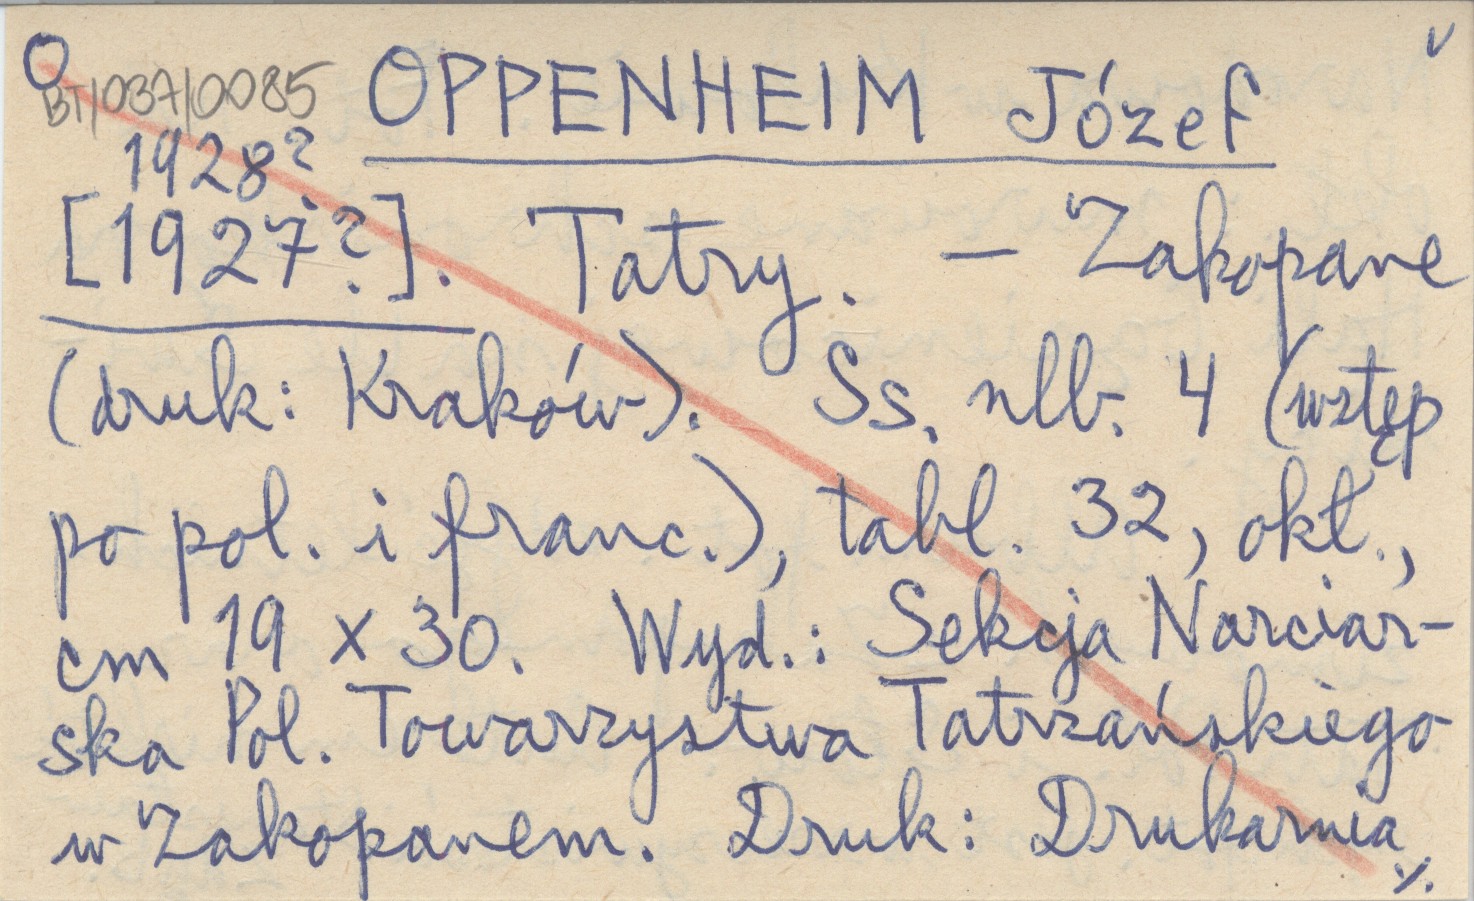 O BT/037/0085 OPPENHEIM Józef v
1928?
[1927?]. Tatry. — Zakopane
(druk: Kraków). Ss. nlb. 4 (wstęp
po pol. i franc.), tabl. 32, okł.,
cm 19 x 30. Wyd.: Sekcja Narciar-
ska Pol. Towarzystwa Tatrzańskiego
w Zakopanem. Druk: Drukarnia
./.